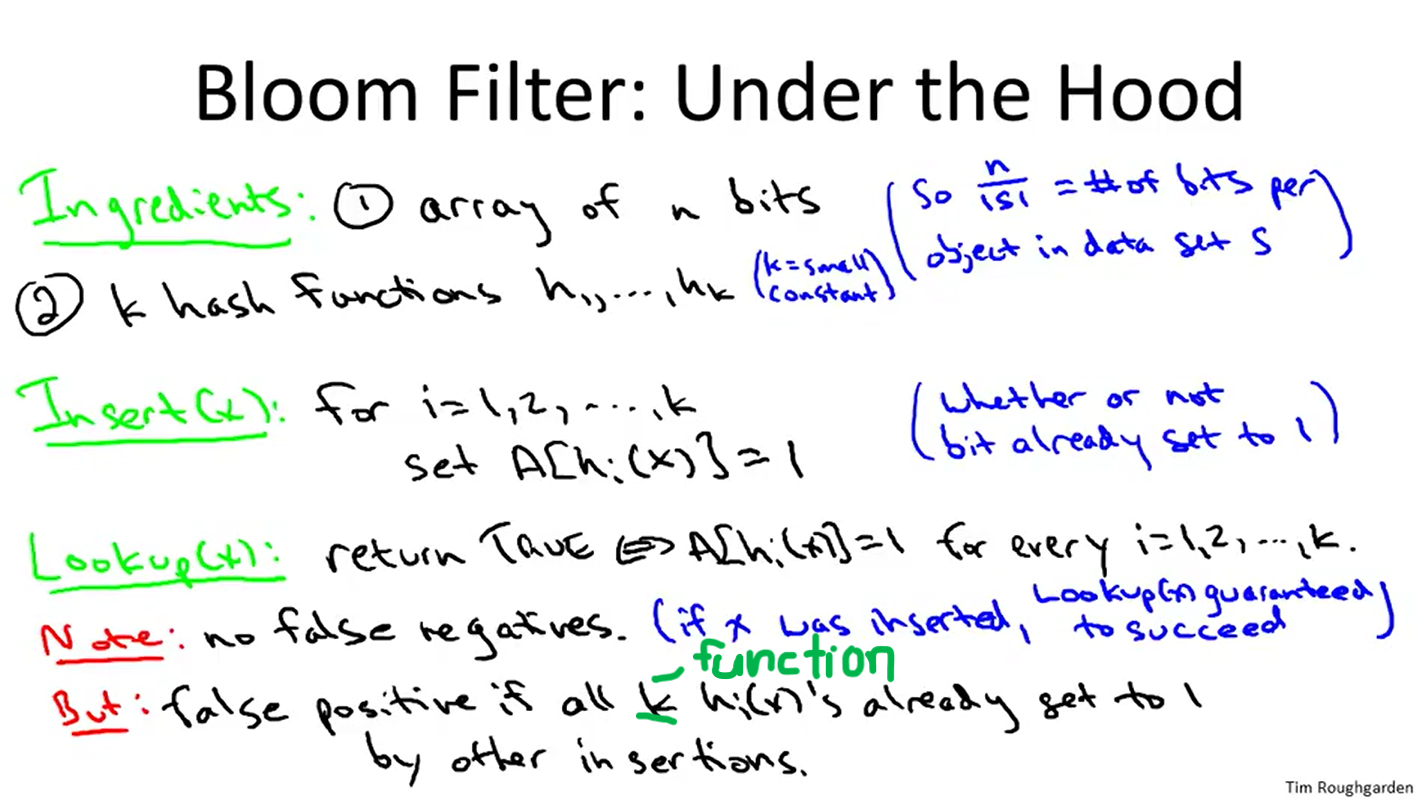 Bloom Filter: Under the Hood
Ingredients: ① array of n bits (So n/|S| = # of bits per
object in data set S)
② k hash functions h₁,...,hₖ (k = small
constant)
Insert(x): for i=1,2,...,k (whether or not
set A[hᵢ(x)]=1 bit already set to 1)
Lookup(x): return TRUE ⇔ A[hᵢ(x)]=1 for every i=1,2,...,k.
Note: no false negatives. (if x was inserted, Lookup(x) guaranteed
to succeed)
function
But: false positive if all k hᵢ(x)'s already set to 1
by other insertions.
Tim Roughgarden